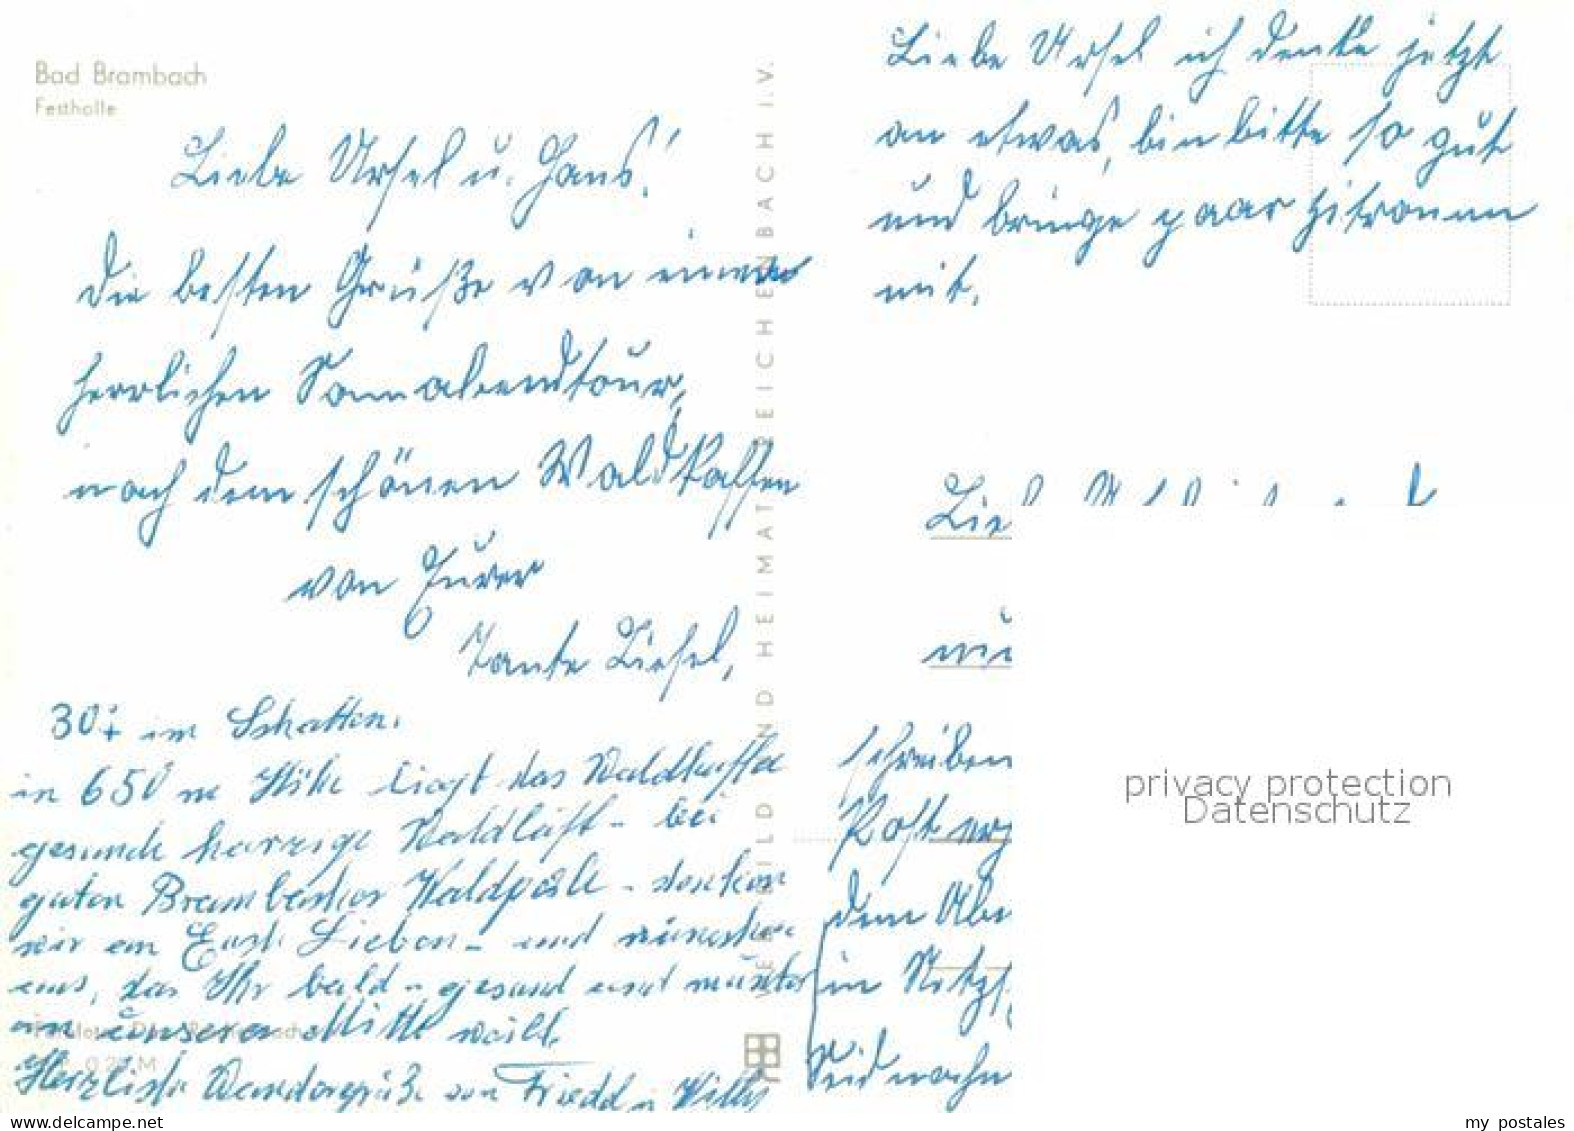 Bad Brambach
Festhalle
Liebe Ursel u. Hans!
Die besten Grüße von einer
herrlichen Sonnabendtour,
nach dem schönen Waldkaffee
von Eurer
Tante Liesel,
30°+ im Schatten.
in 650 m Höhe liegt das Waldkaffee
gesunde harzige Waldluft - bei
guten Brambacher Waldperle - denken
wir an Euch Lieben - und wünschen
uns, das Ihr bald - gesund und munter
in unserer Mitte weilt.
Herzliche Wandergrüße von Friedl u Willy
BILD UND HEIMAT REICHENBACH I.V.
Liebe Ursel ich denke jetzt
an etwas, bin bitte so gut
und bringe paar Zitronen
mit.
Lie
schreiben
Post
dem Abe
in
Seid
privacy protection
Datenschutz
delcampe.net
my_postales